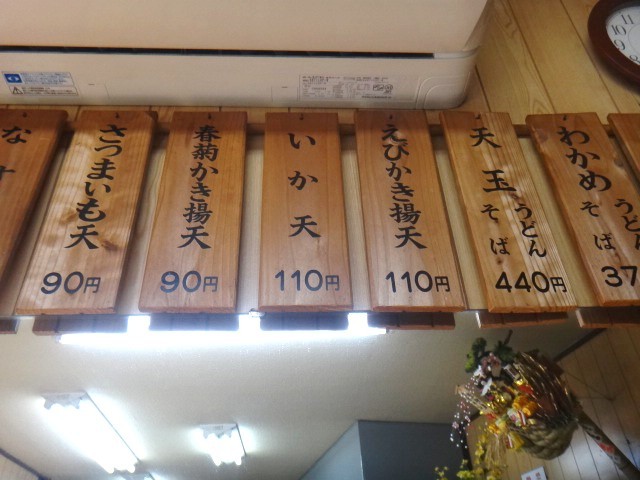 なす
さつまいも天
90円
春菊かき揚天
90円
いか天
110円
えびかき揚天
110円
天玉
うどん
そば
440円
わかめ
うどん
そば
37